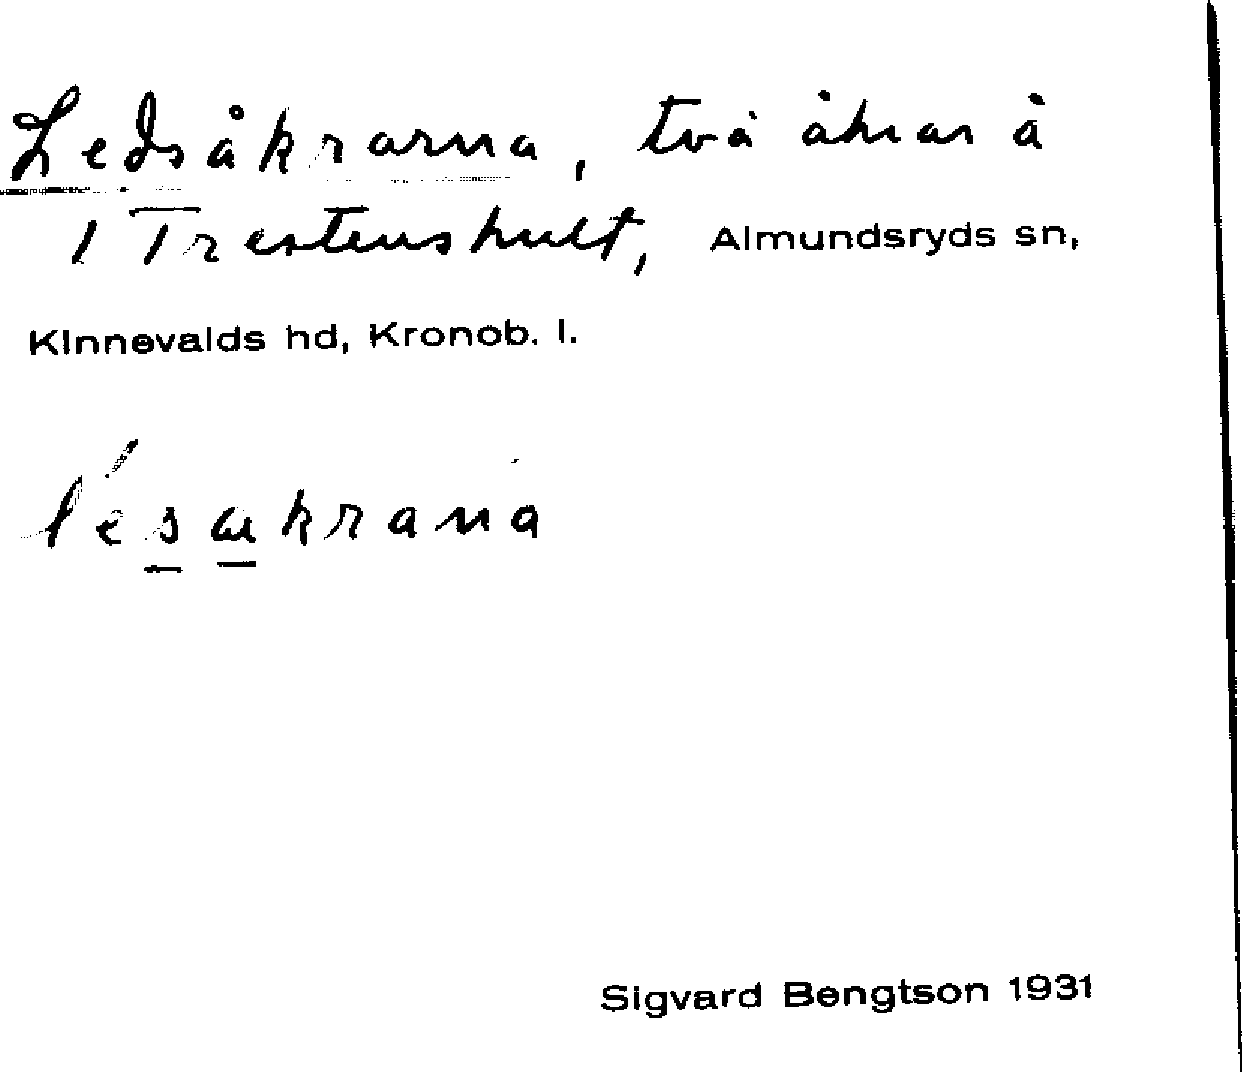 Ledsåkrarna, två åkrar å
1 Trestenshult, Almundsryds sn,
Kinnevalds hd, Kronob. l.
lésakrana
Sigvard Bengtson 1931